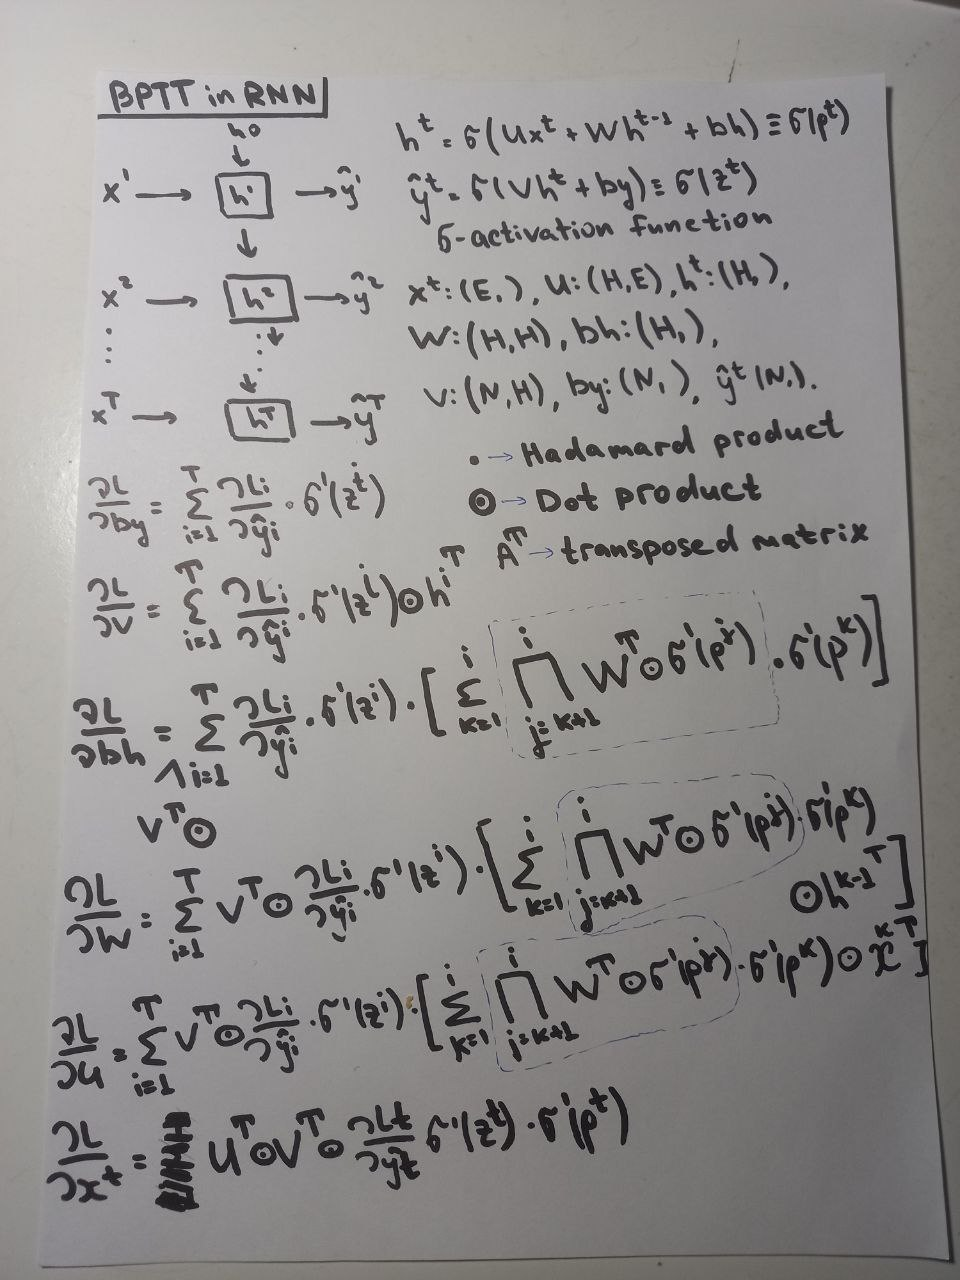 BPTT in RNN
h0
h^t = σ(Ux^t + Wh^{t-1} + bh) ≡ σ(p^t)
x^1 → h^1 → ŷ^1
ŷ^t = σ(Vh^t + by) ≡ σ(z^t)
σ-activation function
x^2 → h^2 → ŷ^2
x^t: (E,), U: (H,E), h^t: (H,),
W: (H,H), bh: (H,),
x^T → h^T → ŷ^T
V: (N,H), by: (N,), ŷ^t (N,).
• → Hadamard product
⊙ → Dot product
A^T → transposed matrix
∂L/∂by = Σ_{i=1}^T ∂Li/∂ŷi · σ'(z^i)
∂L/∂V = Σ_{i=1}^T ∂Li/∂ŷi · σ'(z^i) ⊙ h^{i T}
∂L/∂bh = Σ_{i=1}^T ∂Li/∂ŷi · σ'(z^i) · [ Σ_{k=1}^i ∏_{j=k+1}^i W^T ⊙ σ'(p^j) · σ'(p^k) ]
V^T ⊙
∂L/∂W = Σ_{i=1}^T V^T ⊙ ∂Li/∂ŷi · σ'(z^i) · [ Σ_{k=1}^i ∏_{j=k+1}^i W^T ⊙ σ'(p^j) · σ'(p^k)
⊙ h^{k-1 T} ]
∂L/∂U = Σ_{i=1}^T V^T ⊙ ∂Li/∂ŷi · σ'(z^i) · [ Σ_{k=1}^i ∏_{j=k+1}^i W^T ⊙ σ'(p^j) · σ'(p^k) ⊙ x^{k T} ]
∂L/∂x^t = U^T ⊙ V^T ⊙ ∂Lt/∂ŷt σ'(z^t) · σ'(p^t)